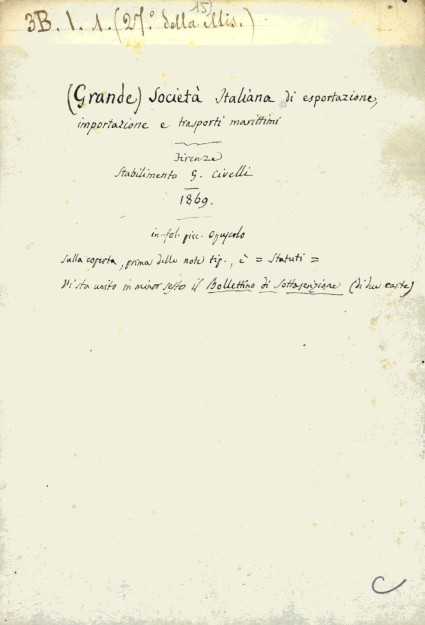 15)
3B. 1. 1. (27.º della Mis.)
(Grande) Società Italiana di esportazione,
importazione e trasporti marittimi
Firenze
Stabilimento G. Civelli
1869.
in-fol. picc. Opuscolo
Sulla coperta, prima delle note tip., è = Statuti =
Vi sta unito in minor sesto il Bollettino di Sottoscrizione (di due carte)
C